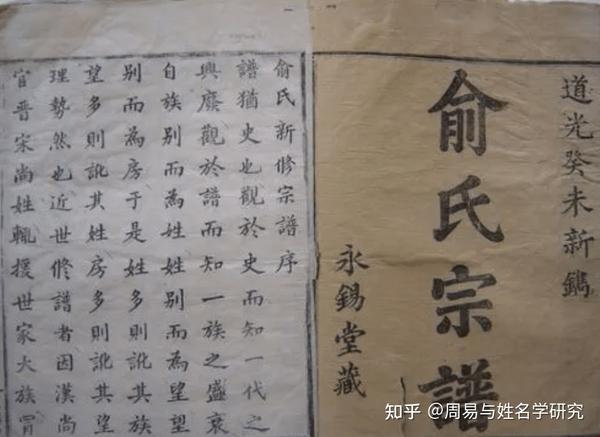 道光癸未新鐫
俞氏宗譜
永錫堂藏
俞氏新修宗譜序
譜猶史也觀於史而知一代之
興廢觀於譜而知一族之盛衰
自族别而為姓姓别而為望望
别而為房于是姓多則訛其族
望多則訛其姓房多則訛其望
理勢然也近世修譜者因漢尚
官晋宋尚姓輒援世家大族冒
知乎 @周易与姓名学研究